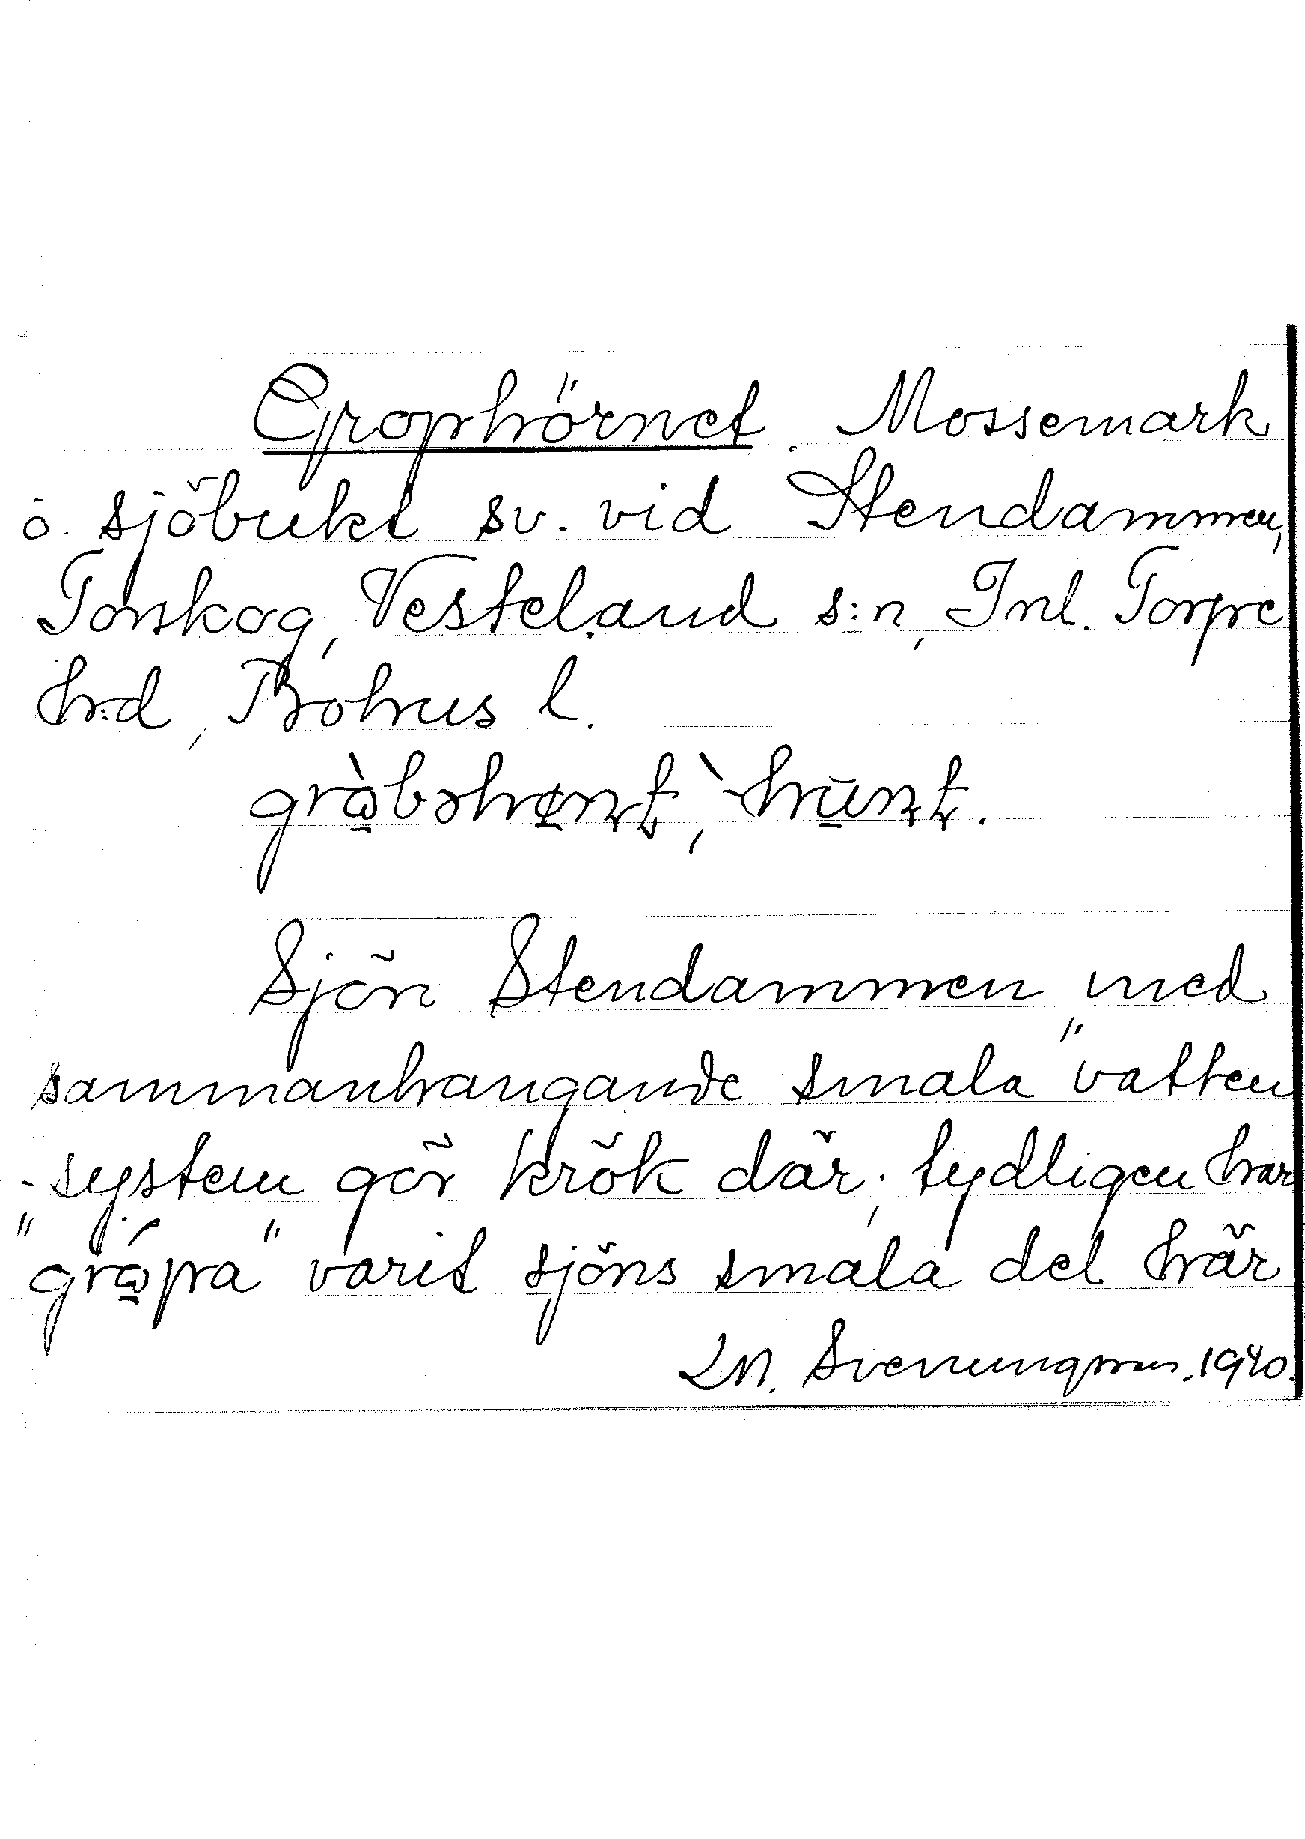 Grophörnet. Mossemark
o. sjöbukt sv. vid Stendammen,
Torskog, Vesteland s:n, Inl. Torpe
h:d, Bohus l.
grɷ̀bəhøṇṭ, `-hūṇṭ.
Sjön Stendammen med
sammanhangande smala "vatten
-system gör krök där; tydligen har
"grɷ́pa" varit sjöns smala del här
LM. Svenungsson. 1940.